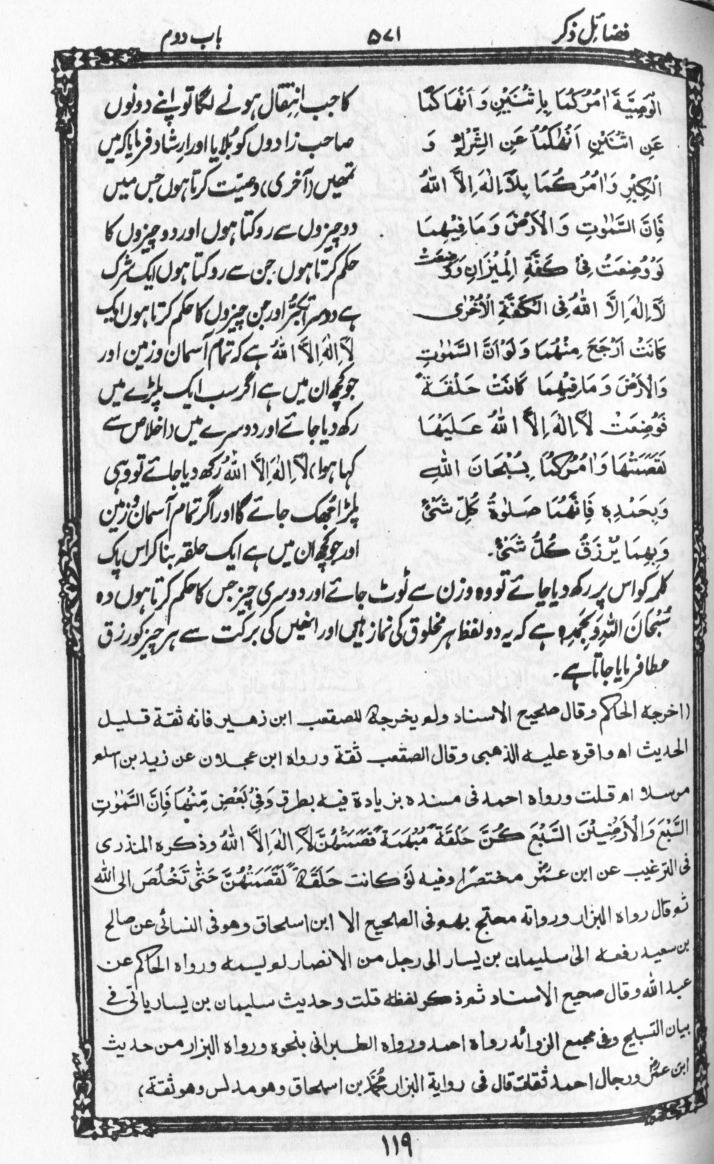 فضائل ذکر
۵۷۱
باب دوم
الْوَصِيَّةَ اٰمُرُكُمَا بِاثْنَيْنِ وَ اَنْهَاكُمَا
عَنِ اثْنَيْنِ اَنْهٰكُمَا عَنِ الشِّرْكِ وَ
الْكِبْرِ وَاٰمُرُكُمَا بِلَآ اِلٰهَ اِلَّا اللّٰهُ
فَاِنَّ السَّمٰوٰتِ وَالْاَرْضَ وَمَا فِيْهِمَا
لَوْ وُضِعَتْ فِیْ كَفَّةِ الْمِيْزَانِ وَوُضِعَتْ
لَآ اِلٰهَ اِلَّا اللّٰهُ فِی الْكَفَّةِ الْاُخْرٰی
كَانَتْ اَرْجَحَ مِنْهُمَا وَلَوْ اَنَّ السَّمٰوٰتِ
وَالْاَرْضَ وَمَا فِيْهِمَا كَانَتْ حَلْقَةً
فَوُضِعَتْ لَآ اِلٰهَ اِلَّا اللّٰهُ عَلَيْهَا
لَقَصَمَتْهَا وَاٰمُرُكُمَا بِسُبْحَانَ اللّٰهِ
وَبِحَمْدِهٖ فَاِنَّهُمَا صَلٰوةُ كُلِّ شَیْءٍ
وَبِهِمَا يُرْزَقُ كُلُّ شَیْءٍ.
کا جب انتقال ہونے لگا تو اپنے دونوں
صاحب زادوں کو بُلایا اور ارشاد فرمایا کہ میں
تمھیں (آخری) وصیت کرتا ہوں جس میں
دو چیزوں سے روکتا ہوں اور دو چیزوں کا
حکم کرتا ہوں، جن سے روکتا ہوں ایک شرک
ہے دوسرا تکبُّر اور جن چیزوں کا حکم کرتا ہوں ایک
لَآ اِلٰهَ اِلَّا اللّٰهُ ہے کہ تمام آسمان و زمین اور
جو کچھ ان میں ہے اگر سب ایک پلڑے میں
رکھ دیا جائے اور دوسرے میں (اخلاص سے
کہا ہوا) لَآ اِلٰهَ اِلَّا اللّٰهُ رکھ دیا جائے تو وہی
پلڑا جُھک جائے گا اور اگر تمام آسمان و زمین
اور جو کچھ ان میں ہے ایک حلقہ بنا کر اس پاک
کلمہ کو اس پر رکھ دیا جائے تو وہ وزن سے ٹوٹ جائے اور دوسری چیز جس کا حکم کرتا ہوں وہ
سُبْحَانَ اللّٰهِ وَبِحَمْدِهٖ ہے کہ یہ دو لفظ ہر مخلوق کی نماز ہیں اور انھیں کی برکت سے ہر چیز کو رزق
عطا فرمایا جاتا ہے۔
(اخرجه الحاكم وقال صحيح الاسناد ولم يخرجه للصقعب ابن زهير فانه ثقة قليل
الحديث اه واقره عليه الذهبی وقال الصقعب ثقة ورواه ابن عجلان عن زيد بن اسلم
مرسلا اه قلت ورواه احمد فی مسنده بزيادة فيه بطرق وَفِیْ بَعْضٍ مِّنْهَا فَاِنَّ السَّمٰوٰتِ
السَّبْعَ وَالْاَرْضِيْنَ السَّبْعَ كُنَّ حَلْقَةً مُبْهَمَةً قَصَمَتْهُنَّ لَآ اِلٰهَ اِلَّا اللّٰهُ وذكره المنذری
فی الترغيب عن ابن عمرؓ مختصرًا وفيه لَوْ كانت حَلْقَةً لَقَصَمَتْهُنَّ حَتّٰی تَخْلُصَ الی الله
ثم قال رواه البزار ورواته محتج بهم فی الصحيح الا ابن اسحاق وهو فی النسائی عن صالح
بن سعيد رفعه الی سليمان بن يسار الی رجل من الانصار لم يسمه ورواه الحاكم عن
عبد الله وقال صحيح الاسناد ثم ذكر لفظه قلت وحديث سليمان بن يسار ياتی فی
بيان التسبيح وفی مجمع الزوائد رواه احمد ورواه الطبرانی بنحوه ورواه البزار من حديث
ابن عمرؓ ورجال احمد ثقات قال فی رواية البزار محمّد بن اسحاق وهو مدلس وهو ثقة)
۱۱۹